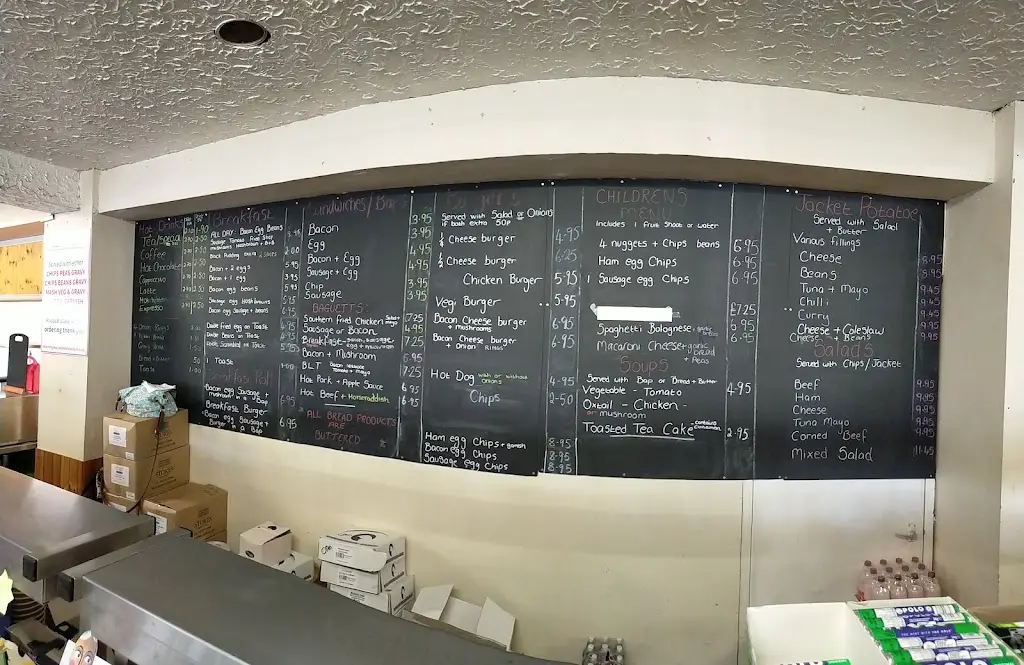 Hot Drinks
Tea/special
Coffee
Hot Chocolate
Cappuccino
Latte
Espresso
Toast 1.00
Breakfast
ALL DAY: Bacon Egg Beans
Sausage Tomato Fried Slice
Black Pudding
Bacon + 2 eggs 5.95
Bacon + 1 egg
Bacon egg beans 5.95
Sausage egg Hash browns
Bacon egg Sausage + 
fried egg on Toast
Beans on Toast
Scrambled on Toast
1 Toast
Bacon egg Sausage +
mushroom in a Bap
Breakfast Burger
Bacon egg Sausage +
in a Bap 6.95
Sandwiches/
Bacon 3.95
Egg 3.25
Bacon + Egg 4.95
Sausage + Egg 4.95
Chip 3.95
Sausage 3.95
BAGUETTS
Southern Fried Chicken Salad + mayo 7.25
Sausage or Bacon 4.95
Breakfast - bacon, sausage, egg + mushroom 7.25
Bacon + Mushroom 5.95
BLT Bacon lettuce Tomato + mayo 7.25
Hot Pork + Apple Sauce 6.95
Hot Beef + Horseraddish 6.95
ALL BREAD PRODUCTS
ARE
BUTTERED
Served with Salad or Onions
if both extra 50p
1/4 Cheese burger 4.95
1/2 Cheese burger 6.25
Chicken Burger 5.95
Vegi Burger 5.95
Bacon Cheese burger
+ mushrooms 6.95
Bacon Cheese burger
+ Onion Rings 6.95
Hot Dog with or without onions 4.95
Chips 2-50
Ham egg Chips + garnish 8-95
Bacon egg Chips 8.95
Sausage egg Chips 8-95
CHILDRENS
MENU
Includes 1 Fruit Shoot or water
4 nuggets + Chips beans 6.95
Ham egg Chips 6.95
1 Sausage egg Chips 6.95
£7.25
Spaghetti Bolognese + garlic bread 6.95
Macaroni Cheese + garlic bread + Peas 6.95
Soups
Served with Bap or Bread + Butter
Vegetable - Tomato 4.95
Oxtail - Chicken -
or mushroom
Toasted Tea Cake - contains Cinnamon 2.95
Jacket Potatoe
Served with Salad
+ Butter
Various fillings
Cheese 8.95
Beans 8.95
Tuna + Mayo 9.45
Chilli 9.45
Curry 9.45
Cheese + Coleslaw 9.45
Cheese + Beans 9.45
Salads
Served with Chips/Jacket
Beef 9.95
Ham 9.95
Cheese 9.95
Tuna Mayo 9.95
Corned Beef 9.95
Mixed Salad 11.45
CHIPS PEAS GRAVY
CHIPS BEANS GRAVY
MASH VEG & GRAVY
ordering thank you
POLO